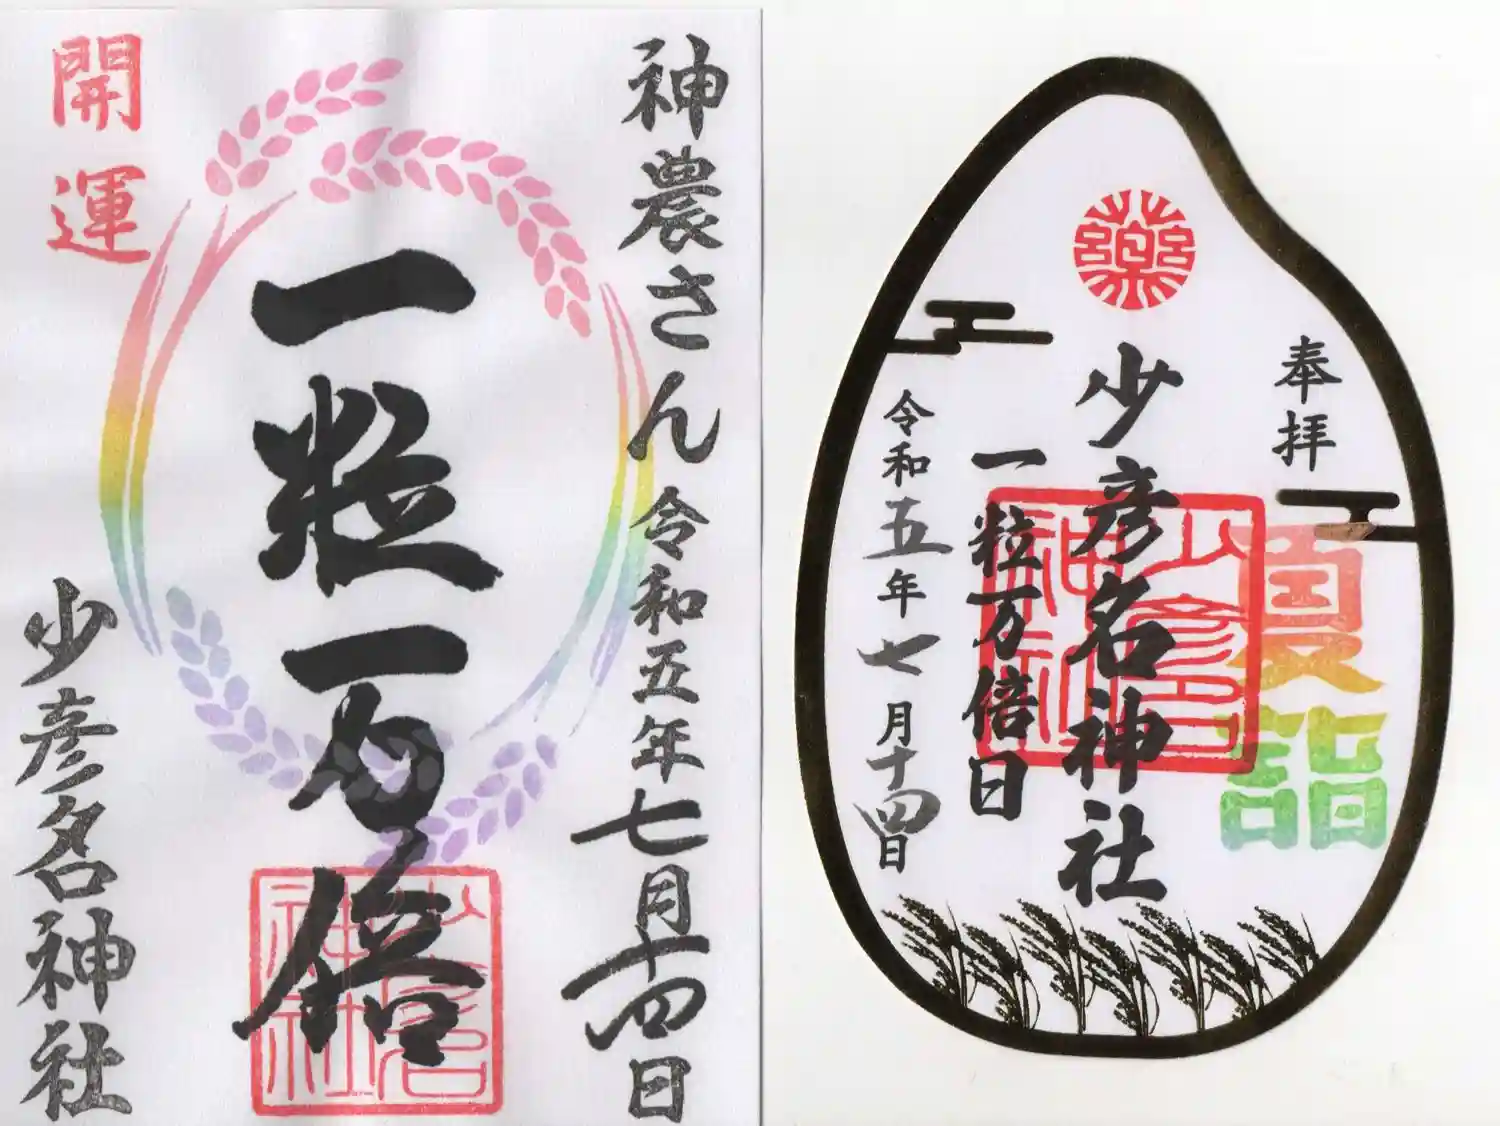 神農さん 令和五年七月十四日
一粒万倍
少彦名神社
開運
少彦名神社
奉拝
夏詣
藥
少彦名神社
少彦名神社
一粒万倍日
令和五年七月十四日